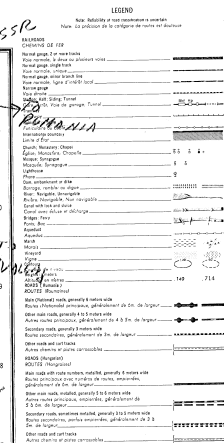 LEGEND
Note: Reliability of road classification is uncertain
Note: La précision de la catégorie de routes est douteuse
SSR
RAILROADS
CHEMINS DE FER
Normal gauge, 2 or more tracks
Voie normale, à deux ou plusieurs voies
Normal gauge, single track
Voie normale, unique
Normal gauge, minor branch line
Voie normale, ligne d'intérêt local
Narrow gauge
Voie étroite
Station; Halt; Siding; Tunnel
Voie de garage; Tunnel
RUMANIA
International boundary
Limite d'État
Church; Monastery; Chapel
Église; Monastère; Chapelle
Mosque; Synagogue
Mosquée; Synagogue
Lighthouse
Phare
Dam, embankment or dike
Barrage, remblai ou digue
River: Navigable; Unnavigable
Rivière: Navigable; Non navigable
Canal with lock and sluice
Canal avec écluse et décharge
Bridges; Ferry
Ponts; Bac
Aqueduct
Aqueduc
Marsh
Marais
Vineyard
Vigne
140 714
ROADS (Rumanian)
ROUTES (Roumaines)
Main (National) roads, generally 6 meters wide
Routes (Nationales) principaux, généralement de 6m. de largeur
Other main roads, generally 4 to 5 meters wide
Autres routes principaux, généralement de 4 à 5m. de largeur
Secondary roads, generally 3 meters wide
Routes secondaires, généralement de 3m. de largeur
Other roads and cart tracks
Autres chemins et pistes carrossables
ROADS (Hungarian)
ROUTES (Hongroises)
Main roads with route numbers, metalled, generally 6 meters wide
Routes principaux avec numéros de routes, empierrées, généralement de 6m. de largeur
Other main roads, metalled, generally 5 to 6 meters wide
Autres routes principaux, empierrées, généralement de 5 à 6m. de largeur
Secondary roads, sometimes metalled, generally 3 to 5 meters wide
Routes secondaires, parfois empierrées, généralement de 3 à 5m. de largeur
Other roads and cart tracks
Autres chemins et pistes carrossables